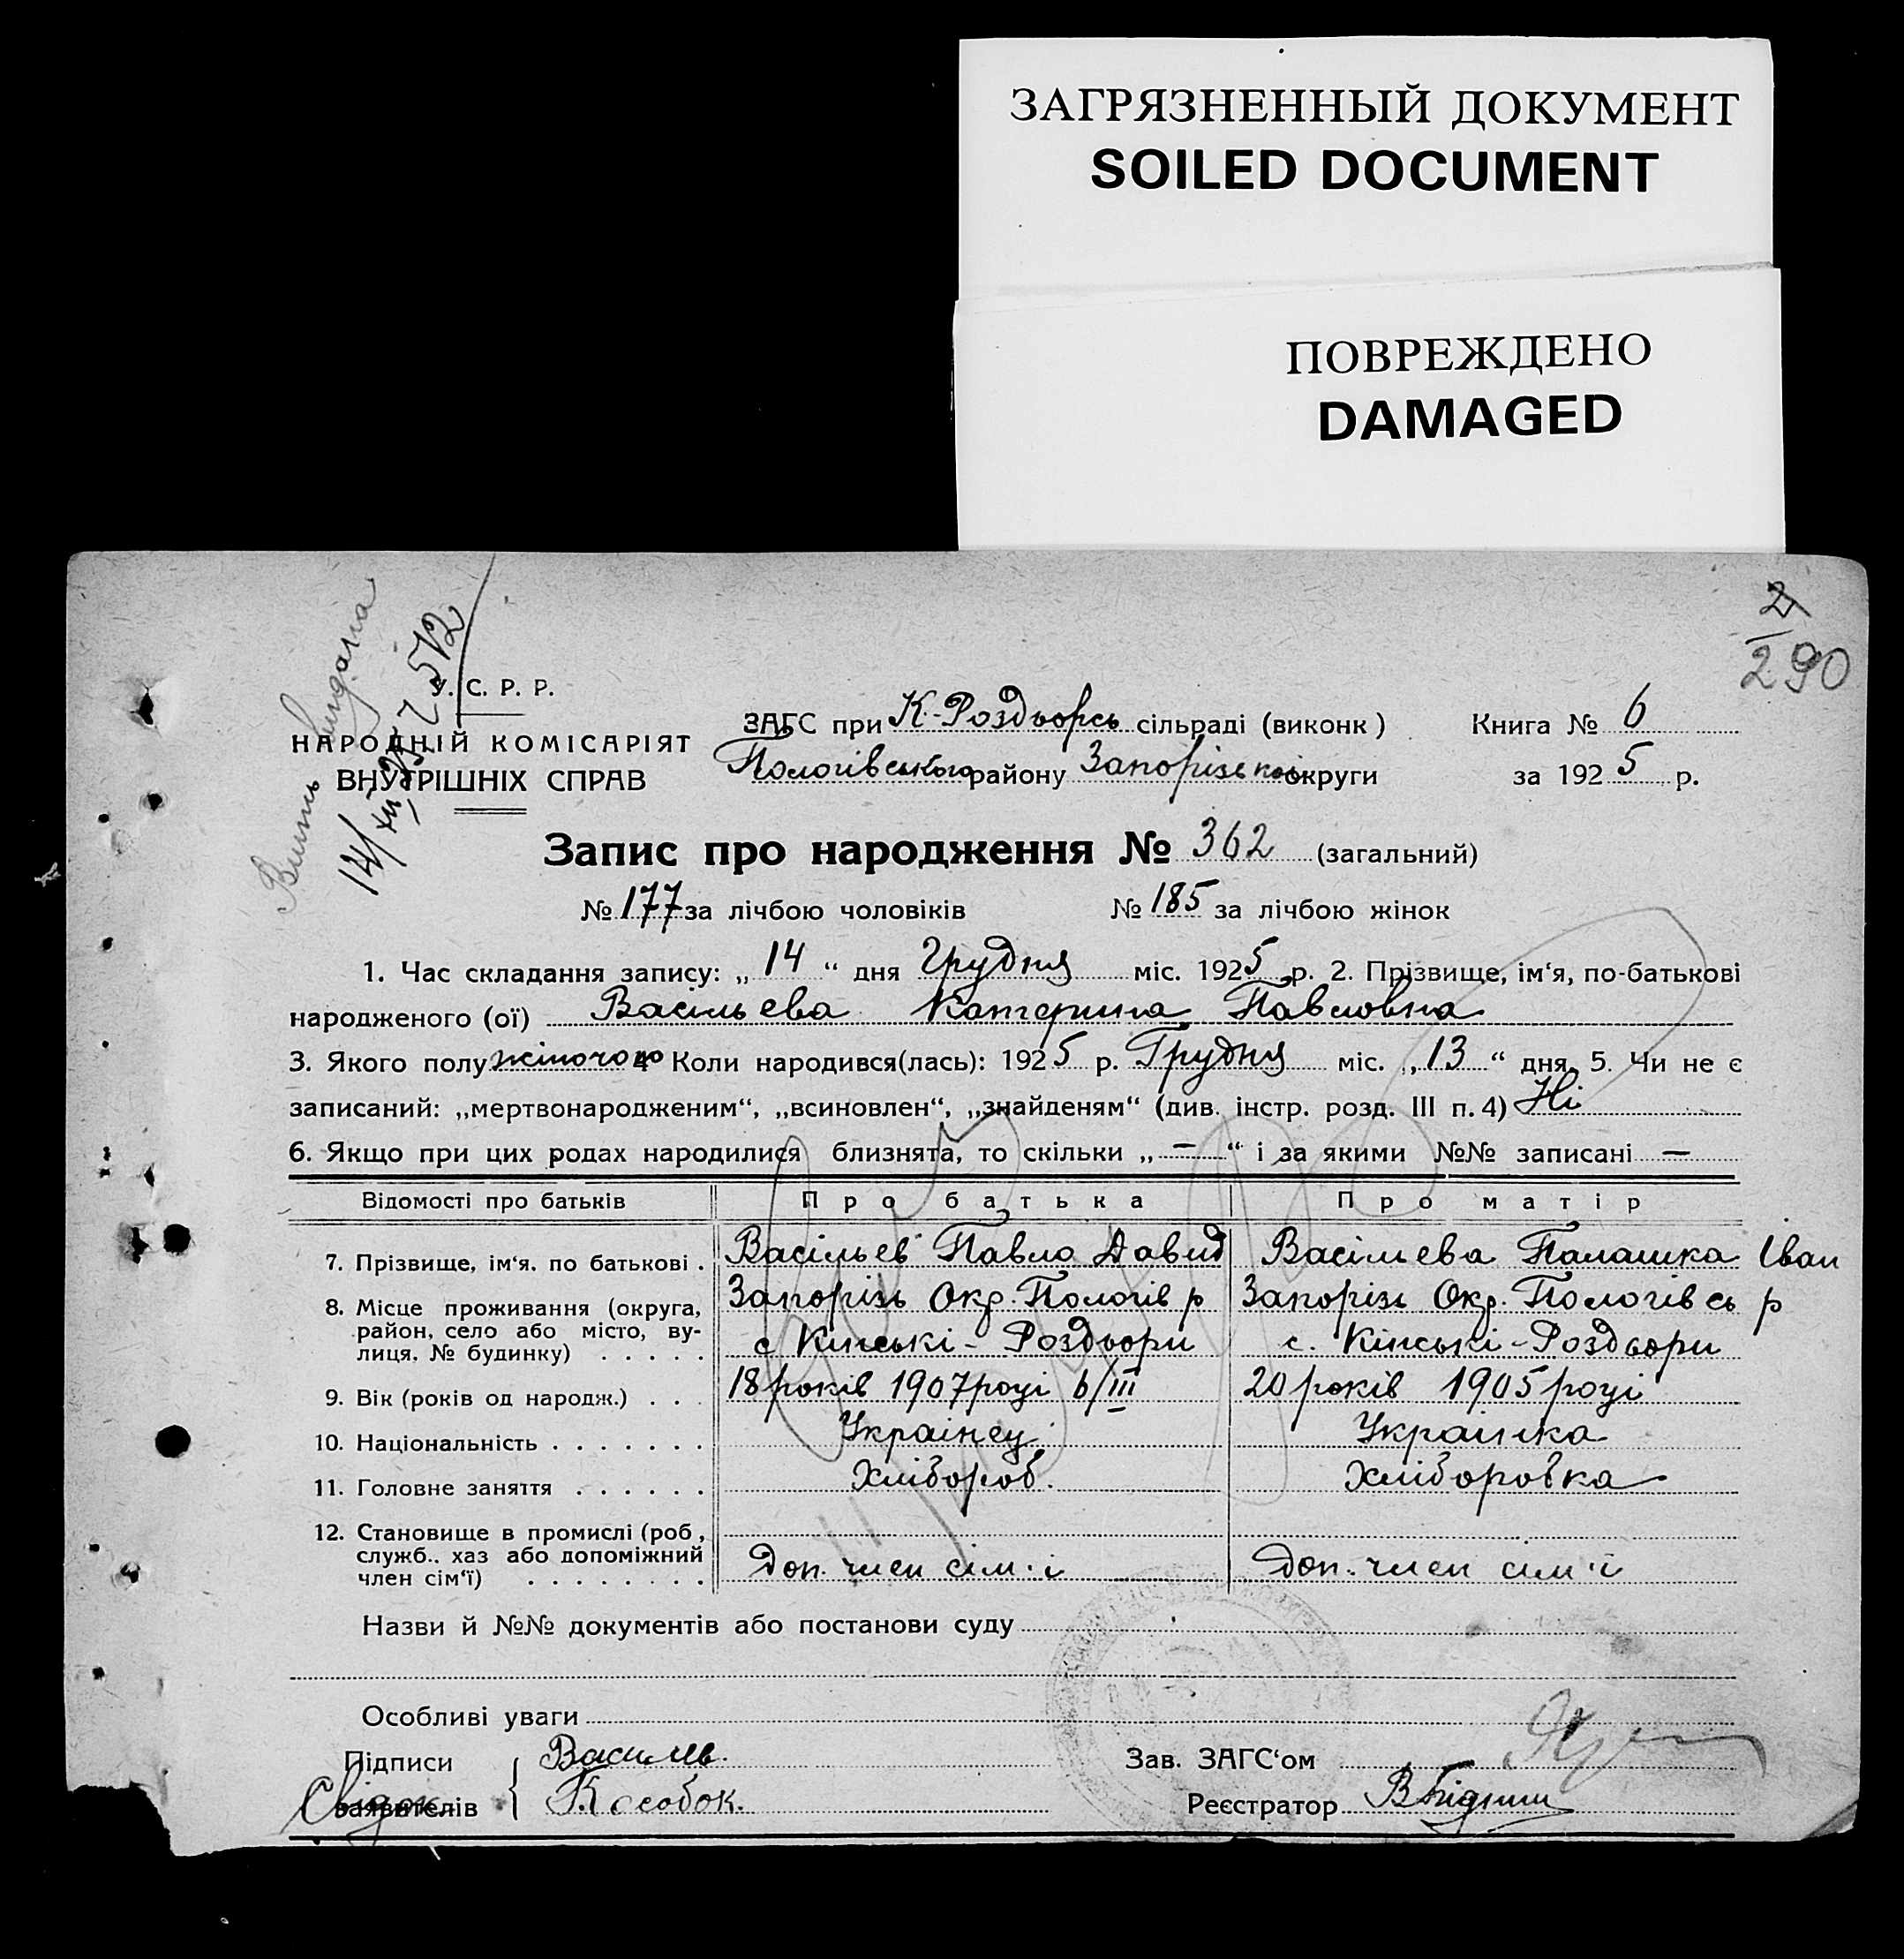 ЗАГРЯЗНЕННЫЙ ДОКУМЕНТ
SOILED DOCUMENT
ПОВРЕЖДЕНО
DAMAGED
2
290
Вить видана
14/XII 25 г. 512
У. С. Р. Р.
НАРОДНІЙ КОМІСАРІЯТ
ВНУТРІШНІХ СПРАВ
ЗАГС при К.-Роздорсь сільраді (виконк) Книга № 6
Пологівського району Запорізької округи за 1925 р.
Запис про народження № 362 (загальний)
№ 177 за лічбою чоловіків № 185 за лічбою жінок
1. Час складання запису: „14“ дня Грудня міс. 1925 р. 2. Прізвище, ім‘я, по-батькові
народженого (ої) Васільева Катерина Павловна
3. Якого полу жіночого 4 Коли народився(лась): 1925 р. Грудня міс. „13“ дня. 5. Чи не є
записаний: „мертвонародженим“, „всиновлен“, „знайденям“ (див. інстр. розд. III п. 4) Ні
6. Якщо при цих родах народилися близнята, то скільки „—“ і за якими №№ записані —
Відомості про батьків Про батька Про матір
7. Прізвище, ім‘я, по батькові . Васільев Павло Давид Васільева Палашка Іван
8. Місце проживання (округа, район, село або місто, ву-
лиця, № будинку) . . . . . Запорізь Окр. Пологів р Запорізь Окр. Пологівсь р
с Кінські - Роздори с. Кінські - Роздори
9. Вік (років од народж.) . . . 18 років 1907 році 6/III 20 років 1905 році
10. Національність . . . . . . . Украінец Украінка
11. Головне заняття . . . . . . Хлібороб. Хліборобка
12. Становище в промислі (роб,
служб., хаз або допоміжний
член сім‘ї) . . . . . . . . Доп. член сім'і Доп. член сім'ї
Назви й №№ документів або постанови суду
Особливі уваги
Підписи Василев. Зав. ЗАГС‘ом
заявителів Свідок Кособок. Реєстратор